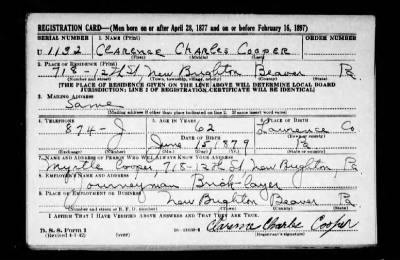 REGISTRATION CARD—(Men born on or after April 28, 1877 and on or before February 16, 1897)
SERIAL NUMBER 1. NAME (Print) ORDER NUMBER
U 1132 CLARENCE CHARLES COOPER
(First) (Middle) (Last)
2. PLACE OF RESIDENCE (Print)
718-12th St. New Brighton Beaver Pa.
(Number and street) (Town, township, village, or city) (County) (State)
[THE PLACE OF RESIDENCE GIVEN ON THE LINE ABOVE WILL DETERMINE LOCAL BOARD
JURISDICTION; LINE 2 OF REGISTRATION CERTIFICATE WILL BE IDENTICAL]
3. MAILING ADDRESS
Same
[Mailing address if other than place indicated on line 2. If same insert word same]
4. TELEPHONE 5. AGE IN YEARS 6. PLACE OF BIRTH
874-J 62 Lawrence Co
DATE OF BIRTH
June 15, 1879 Pa
(Exchange) (Number) (Mo.) (Day) (Yr.) (State or country)
7. NAME AND ADDRESS OF PERSON WHO WILL ALWAYS KNOW YOUR ADDRESS
Myrtle Cooper, 718-12th St New Brighton, Pa
8. EMPLOYER'S NAME AND ADDRESS
Journeyman Brick layer
9. PLACE OF EMPLOYMENT OR BUSINESS
New Brighton Beaver Pa
(Number and street or R. F. D. number) (Town) (County) (State)
I AFFIRM THAT I HAVE VERIFIED ABOVE ANSWERS AND THAT THEY ARE TRUE.
D. S. S. Form 1
(Revised 4-1-42) Clarence Charles Cooper
(Registrant's signature)